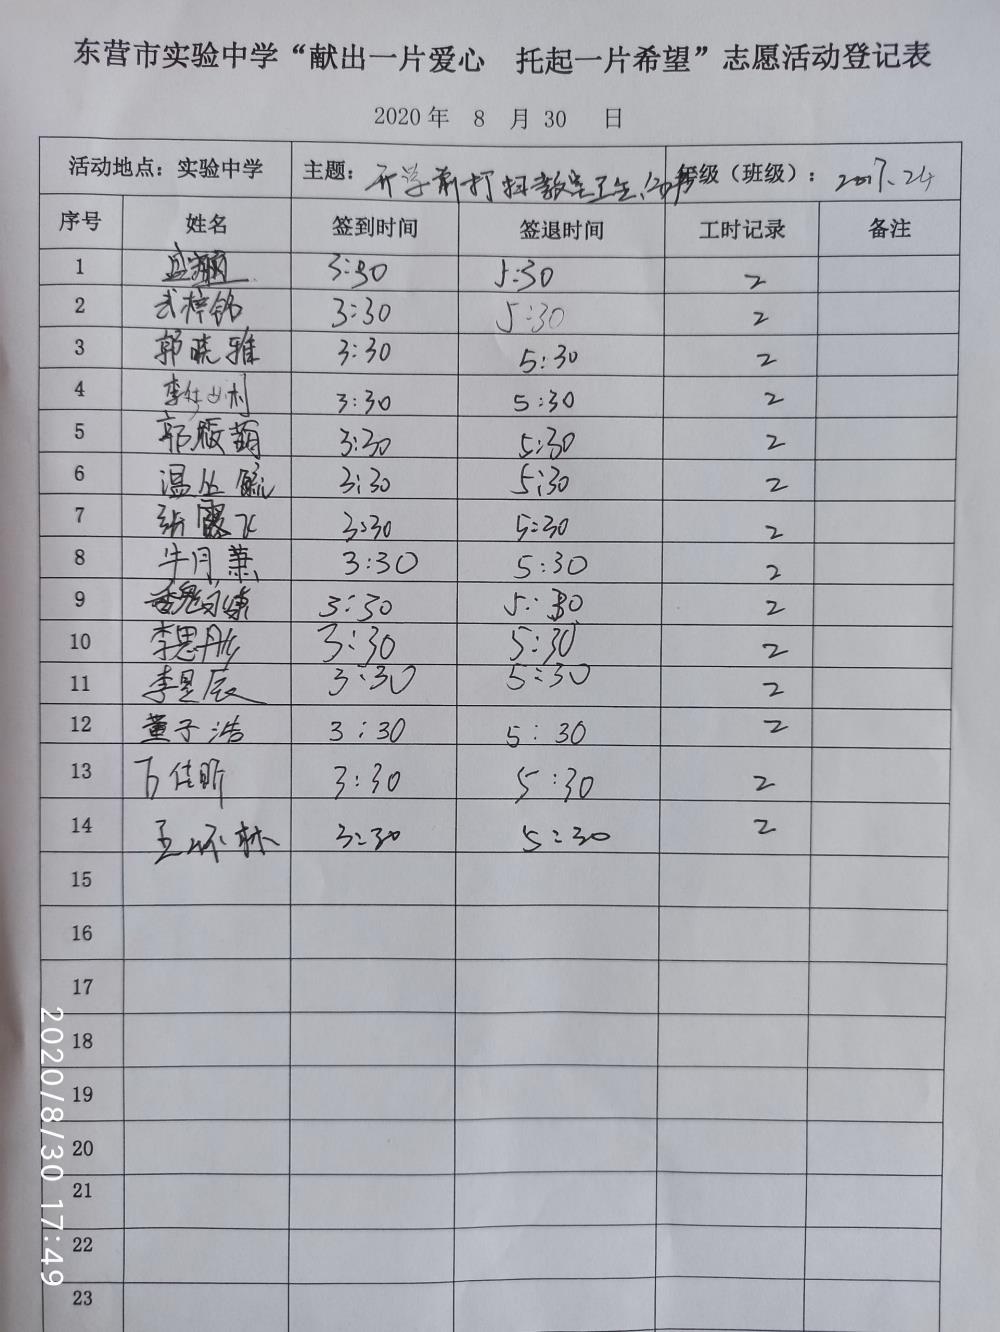 东营市实验中学“献出一片爱心 托起一片希望”志愿活动登记表
2020 年 8 月 30 日
活动地点：实验中学 主题：开学前打扫教室卫生 年级（班级）：2017.24
序号 姓名 签到时间 签退时间 工时记录 备注
1 3:30 5:30 2
2 武梓铭 3:30 5:30 2
3 郭晓雅 3:30 5:30 2
4 3:30 5:30 2
5 3:30 5:30 2
6 温丛毓 3:30 5:30 2
7 张霞飞 3:30 5:30 2
8 牛月萧 3:30 5:30 2
9 3:30 5:30 2
10 李思彤 3:30 5:30 2
11 李昱辰 3:30 5:30 2
12 董子浩 3:30 5:30 2
13 佳昕 3:30 5:30 2
14 王怀林 3:30 5:30 2
15
16
17
18
19
20
21
22
23
2020/8/30 17:49